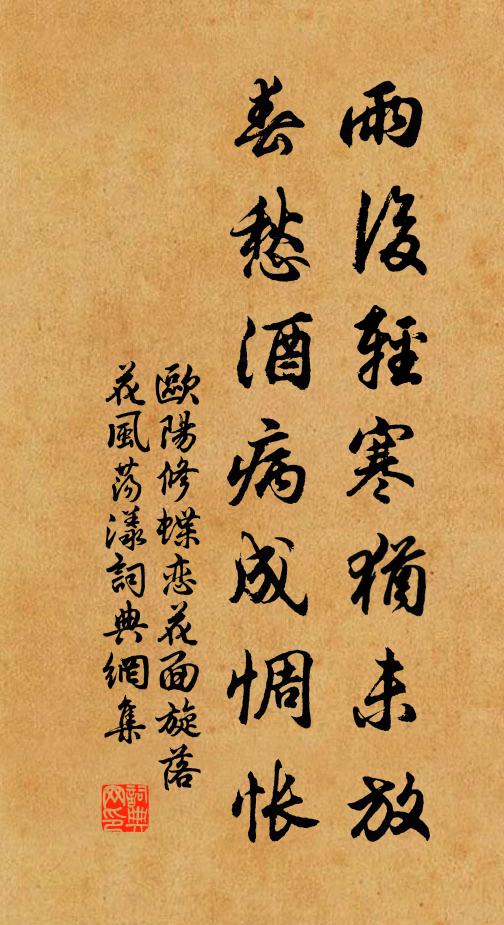 雨後輕寒猶未放
春愁酒病成惆悵
歐陽修蝶恋花面旋落
花風蕩漾詞典網集
詞典网印